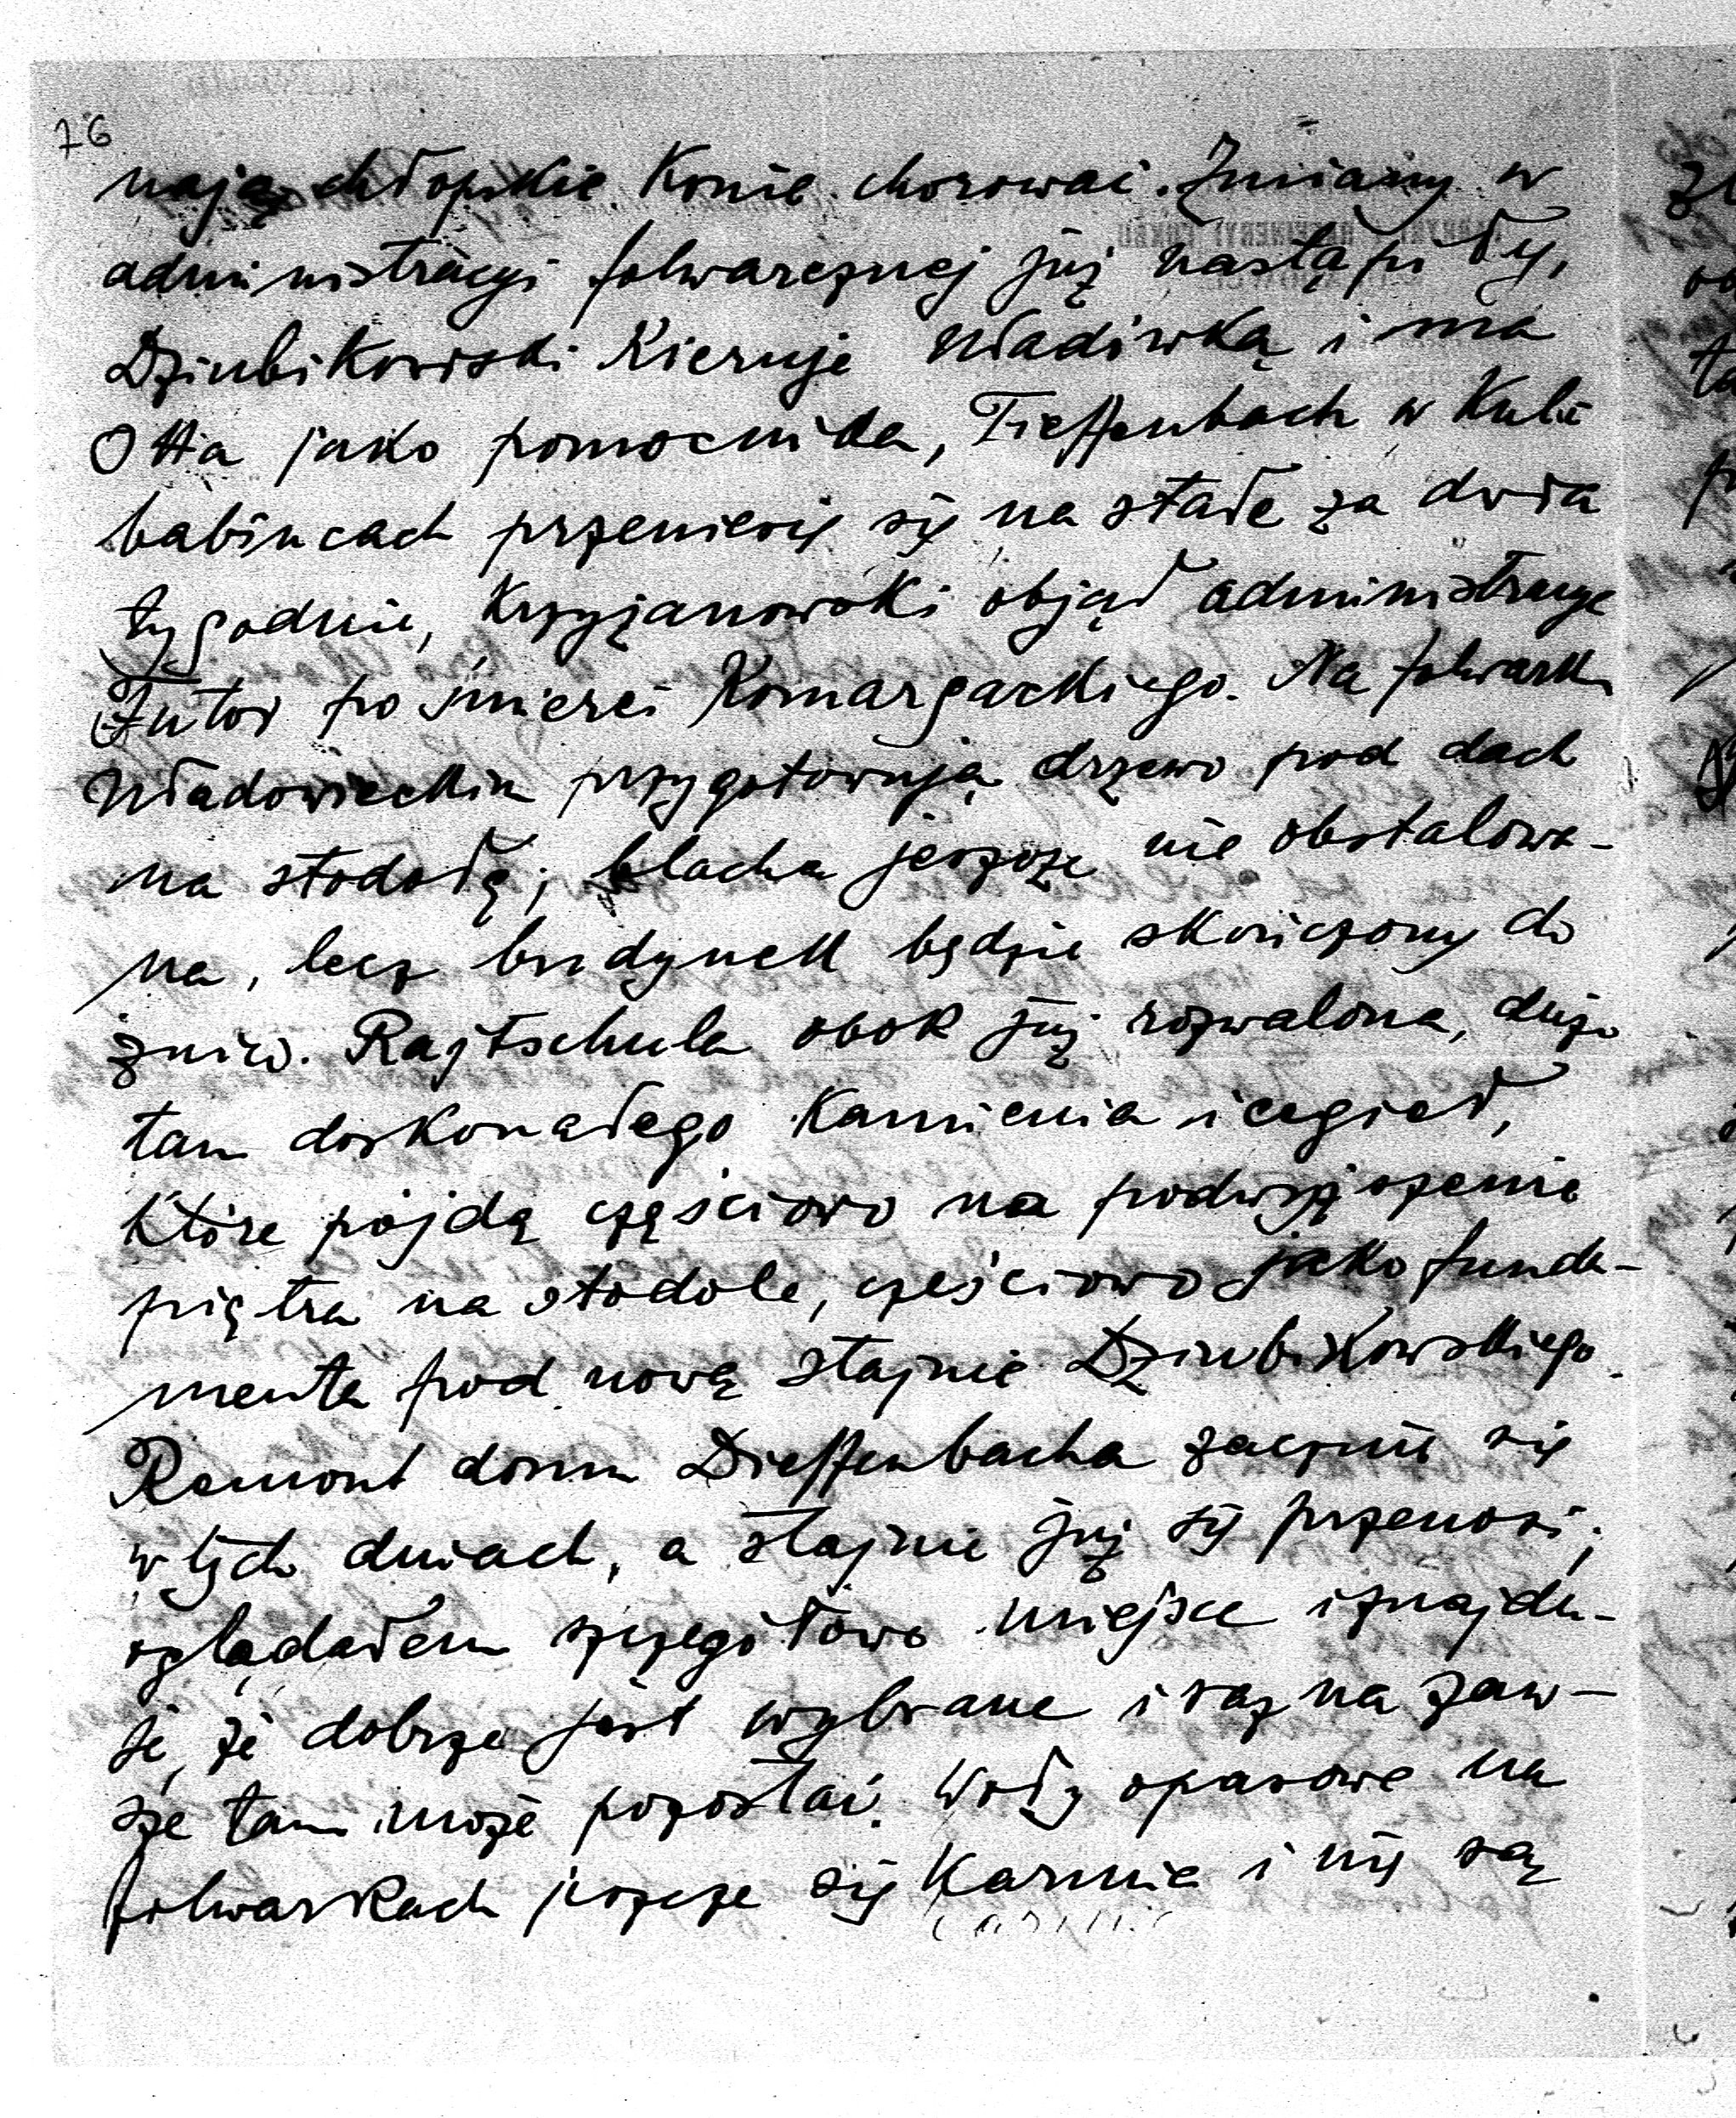 76
nają chłopskie konie chorować. Zmiany w
administracyi folwarcznej już nastąpiły,
Dziubikowski kieruje Władiwką i ma
Otta jako pomocnika, Tieffenbach w Kuli
babińcach przeniesie się na stałe za dwa
tygodnie, Krzyżanowski objął administracye
Futor po śmierci Komargackiego. Na folwarku
Władowieckim przygotowują drzewo pod dach
na stodołę; blacha jeszcze nie obstalowa-
na, lecz budynek będzie skończony do
żniw. Rajtschula obok już rozwalona, dużo
tam doskonałego kamienia i cegieł,
które pójdą częściowo na podwyższenie
piętra na stodole, częściowo jako funda-
menta pod nową stajnie Dziubikowskiego.
Remont domu Dieffenbacha zacznie się
w tych dniach, a stajnie już się przenosi;
oglądałem szczegółowo miejsce i znajdu-
je, że dobrze jest wybrane i raz na zaw-
sze tam może pozostać. Woły opasowe na
folwarkach jeszcze się karmie i nie są